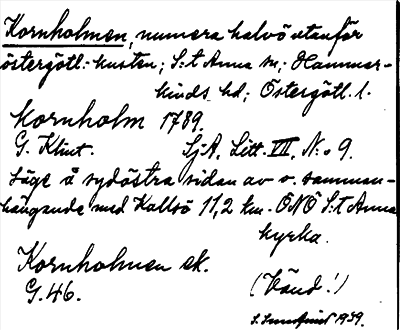 Kornholmen, numera halvö utanför
östergötl.-kusten; S:t Anna sn; Hammar-
kinds hd; Östergötl. l.
Kornholm 1789.
G. Klint. SjA, Litt. VII, N:o 9.
Läge å sydöstra sidan av o. samman-
hängande med Kallsö 11,2 km. ÖNÖ S:t Anna
kyrka.
Kornholmen ek.
G. 46. (Vänd!)
1939.